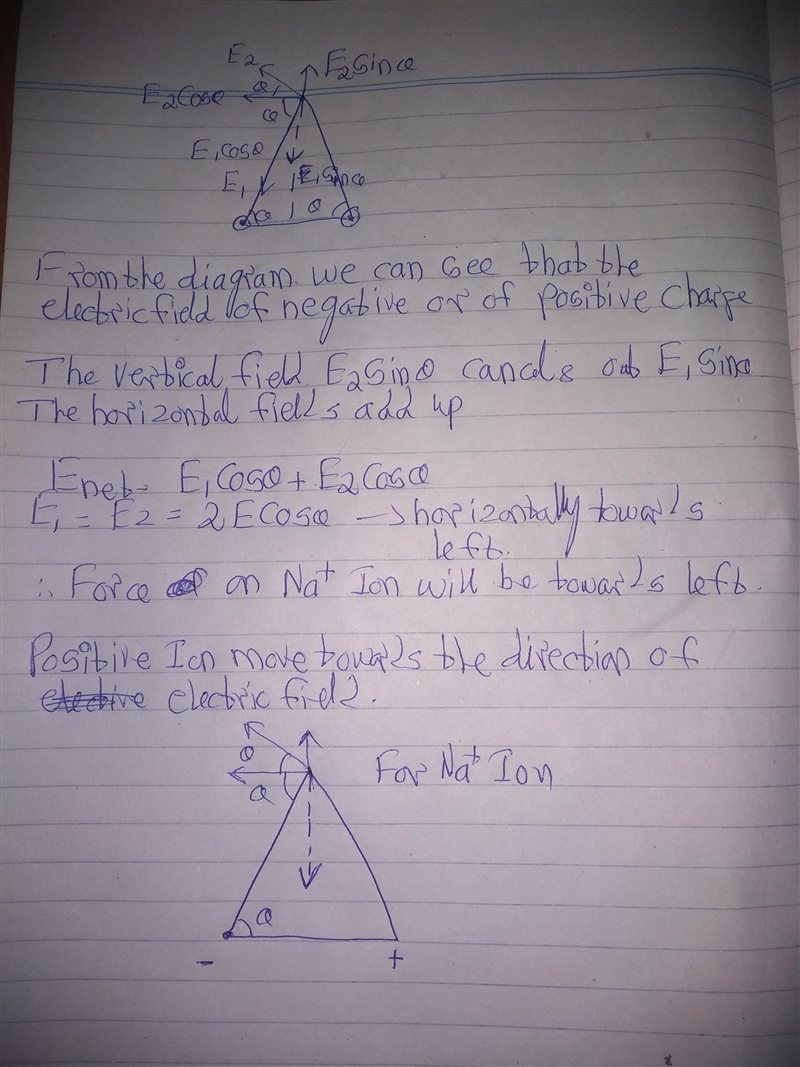 E₂
E₂Sinθ
E₂Cosθ
θ
θ
E₁cosθ
E₁
E₁Sinθ
θ
θ
From the diagram we can see that the
electric field of negative or of positive Charge
The vertical field E₂Sinθ cancals out E₁Sinθ
The horizontal fields add up
Enet = E₁Cosθ + E₂Cosθ
E₁ = E₂ = 2ECosθ → horizontally towards
left.
∴ Force on Na⁺ Ion will be towards left.
Positive Ion move towards the direction of
electric field.
θ
θ
For Na⁺ Ion
θ
- +